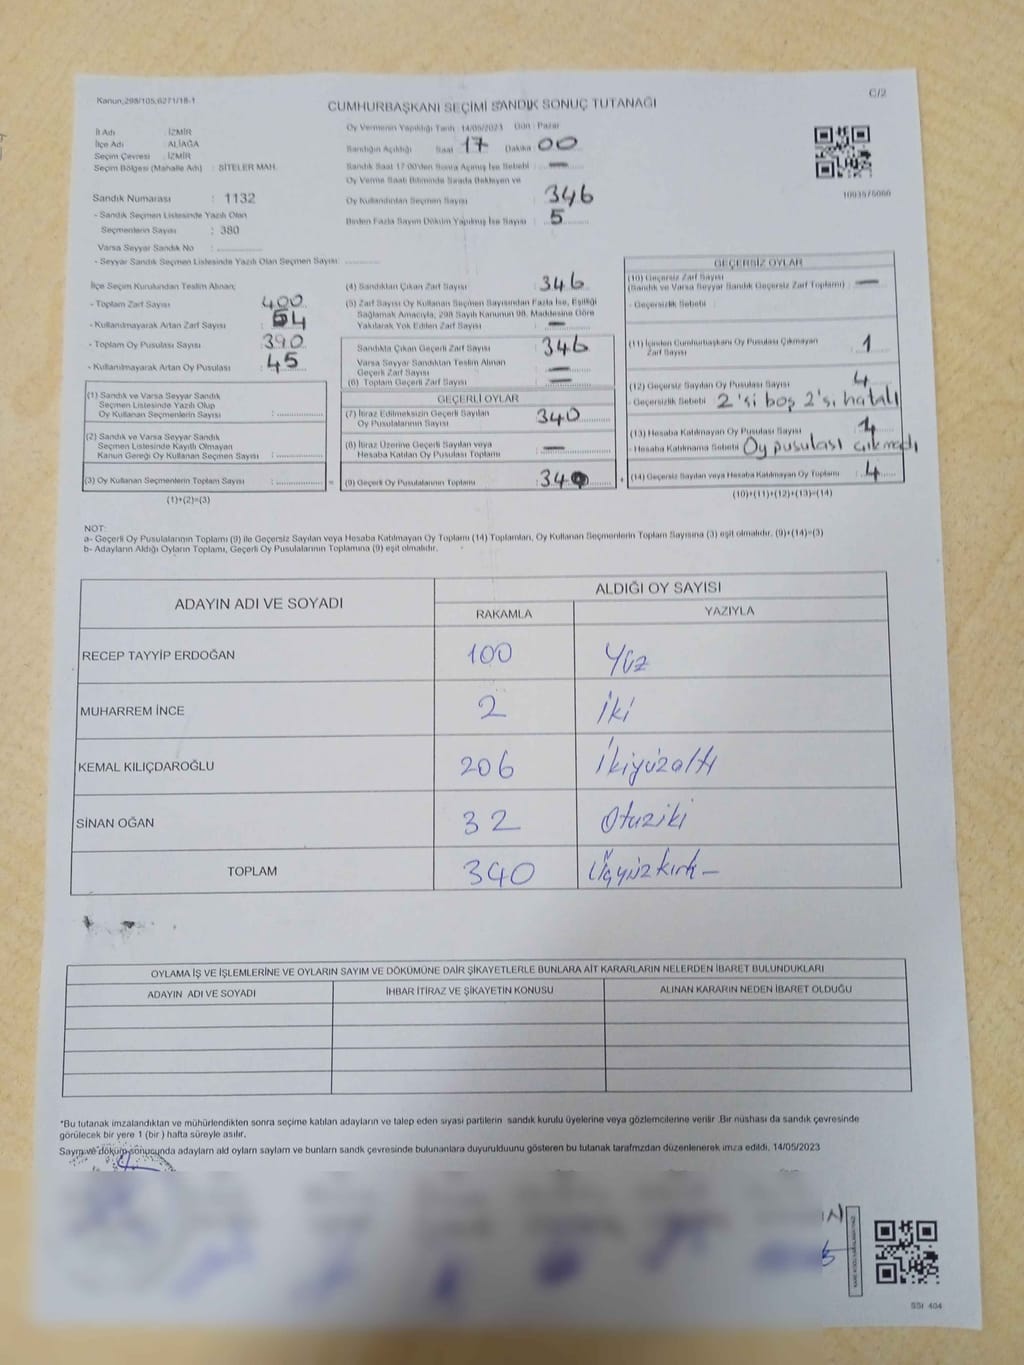 Kanun,298/105,6271/18-1
C/2
CUMHURBAŞKANI SEÇİMİ SANDIK SONUÇ TUTANAĞI
İl Adı : İZMİR
İlçe Adı : ALİAĞA
Seçim Çevresi : İZMİR
Seçim Bölgesi (Mahalle Adı) : SİTELER MAH.
Sandık Numarası : 1132
- Sandık Seçmen Listesinde Yazılı Olan
Seçmenlerin Sayısı : 380
Varsa Seyyar Sandık No :
- Seyyar Sandık Seçmen Listesinde Yazılı Olan Seçmen Sayısı:
Oy Vermenin Yapıldığı Tarih : 14/05/2023 Gün : Pazar
Sandığın Açıldığı Saat 17 Dakika 00
Sandık Saat 17:00'den Sonra Açılmış İse Sebebi : —
Oy Verme Saati Bitiminde Sırada Bekleyen ve
Oy Kullandırılan Seçmen Sayısı : 346
Birden Fazla Sayım Döküm Yapılmış İse Sayısı : 5
İlçe Seçim Kurulundan Teslim Alınan;
- Toplam Zarf Sayısı : 400
- Kullanılmayarak Artan Zarf Sayısı : 54
- Toplam Oy Pusulası Sayısı : 390
- Kullanılmayarak Artan Oy Pusulası : 45
(1) Sandık ve Varsa Seyyar Sandık
Seçmen Listesinde Yazılı Olup
Oy Kullanan Seçmenlerin Sayısı :
(2) Sandık ve Varsa Seyyar Sandık
Seçmen Listesinde Kayıtlı Olmayan
Kanun Gereği Oy Kullanan Seçmen Sayısı :
(3) Oy Kullanan Seçmenlerin Toplam Sayısı :
(1)+(2)=(3)
(4) Sandıktan Çıkan Zarf Sayısı : 346
(5) Zarf Sayısı Oy Kullanan Seçmen Sayısından Fazla İse, Eşitliği
Sağlamak Amacıyla, 298 Sayılı Kanunun 98. Maddesine Göre
Yakılarak Yok Edilen Zarf Sayısı : —
Sandıkta Çıkan Geçerli Zarf Sayısı : 346
Varsa Seyyar Sandıktan Teslim Alınan
Geçerli Zarf Sayısı : —
(6) Toplam Geçerli Zarf Sayısı : —
GEÇERLİ OYLAR
(7) İtiraz Edilmeksizin Geçerli Sayılan
Oy Pusulalarının Sayısı : 340
(8) İtiraz Üzerine Geçerli Sayılan veya
Hesaba Katılan Oy Pusulası Toplamı : —
(9) Geçerli Oy Pusulalarının Toplamı : 340
GEÇERSİZ OYLAR
(10) Geçersiz Zarf Sayısı
(Sandık ve Varsa Seyyar Sandık Geçersiz Zarf Toplamı) : —
- Geçersizlik Sebebi :
(11) İçinden Cumhurbaşkanı Oy Pusulası Çıkmayan
Zarf Sayısı : 1
(12) Geçersiz Sayılan Oy Pusulası Sayısı : 4
- Geçersizlik Sebebi : 2'si boş 2'si hatalı
(13) Hesaba Katılmayan Oy Pusulası Sayısı
- Hesaba Katılmama Sebebi : Oy pusulası çıkmadı
(14) Geçersiz Sayılan veya Hesaba Katılmayan Oy Toplamı : 4
(10)+(11)+(12)+(13)=(14)
NOT:
a- Geçerli Oy Pusulalarının Toplamı (9) ile Geçersiz Sayılan veya Hesaba Katılmayan Oy Toplamı (14) Toplamları, Oy Kullanan Seçmenlerin Toplam Sayısına (3) eşit olmalıdır. (9)+(14)=(3)
b- Adayların Aldığı Oyların Toplamı, Geçerli Oy Pusulalarının Toplamına (9) eşit olmalıdır.
ADAYIN ADI VE SOYADI
ALDIĞI OY SAYISI
RAKAMLA YAZIYLA
RECEP TAYYİP ERDOĞAN 100 Yüz
MUHARREM İNCE 2 İki
KEMAL KILIÇDAROĞLU 206 İkiyüzaltı
SİNAN OĞAN 32 Otuziki
TOPLAM 340 Üçyüzkırk —
OYLAMA İŞ VE İŞLEMLERİNE VE OYLARIN SAYIM VE DÖKÜMÜNE DAİR ŞİKAYETLERLE BUNLARA AİT KARARLARIN NELERDEN İBARET BULUNDUKLARI
ADAYIN ADI VE SOYADI İHBAR İTİRAZ VE ŞİKAYETİN KONUSU ALINAN KARARIN NEDEN İBARET OLDUĞU
*Bu tutanak imzalandıktan ve mühürlendikten sonra seçime katılan adayların ve talep eden siyasi partilerin sandık kurulu üyelerine veya gözlemcilerine verilir .Bir nüshası da sandık çevresinde
görülecek bir yere 1 (bir ) hafta süreyle asılır.
Sayım ve döküm sonucunda adayların ald oyların sayların ve bunların sandık çevresinde bulunanlara duyurulduunu gösteren bu tutanak tarafmzdan düzenlenerek imza edildi. 14/05/2023
SSI 404